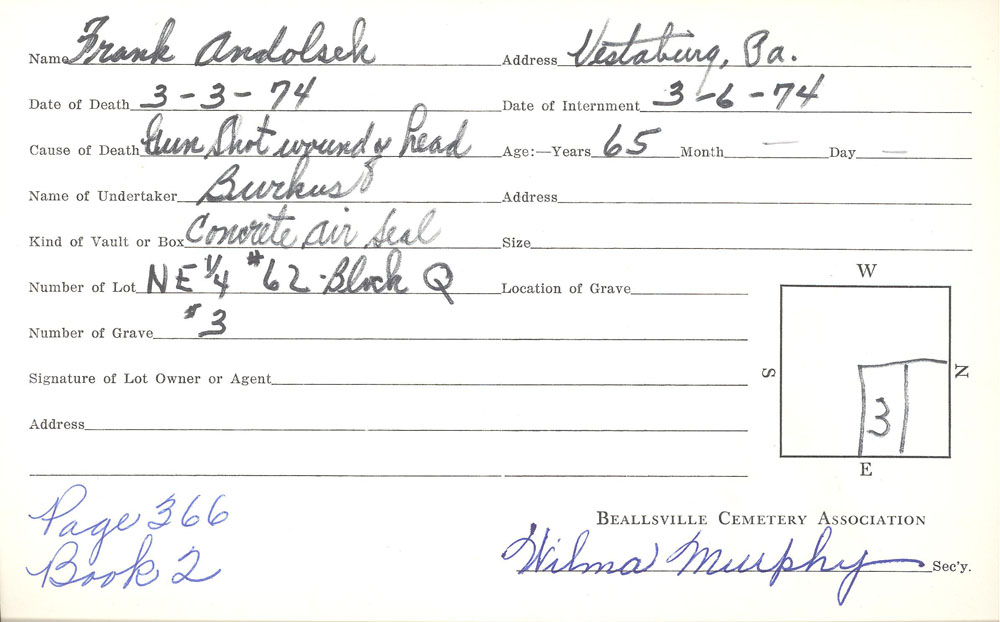 Name Frank Andolsek Address Vestaburg, Pa.
Date of Death 3-3-74 Date of Internment 3-6-74
Cause of Death Gun Shot wound of head Age:—Years 65 Month — Day —
Name of Undertaker Burkus Address
Kind of Vault or Box Concrete air seal Size
Number of Lot NE 1/4 #62 - Block Q Location of Grave
Number of Grave #3
Signature of Lot Owner or Agent
Address
W
S
N
3
E
Page 366
Book 2
BEALLSVILLE CEMETERY ASSOCIATION
Wilma Murphy Sec'y.